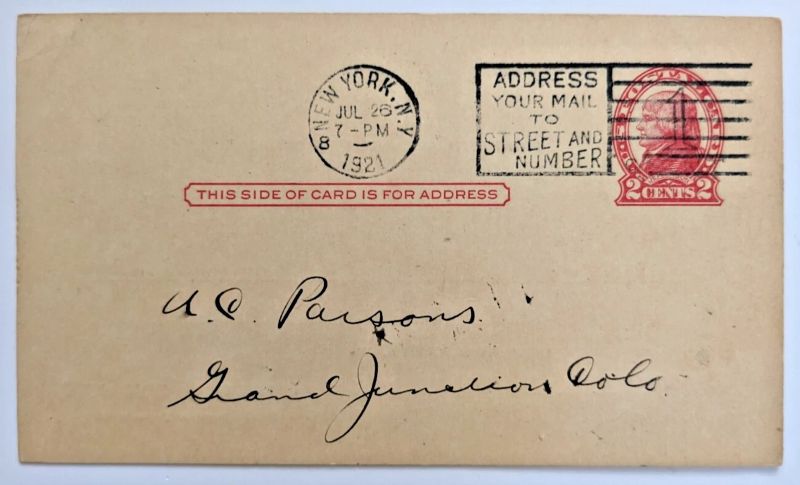 NEW YORK, N.Y.
JUL 26
7-PM
8
1921
ADDRESS
YOUR MAIL
TO
STREET AND
NUMBER
2 CENTS 2
THIS SIDE OF CARD IS FOR ADDRESS
A. C. Parsons
Grand Junction Colo.